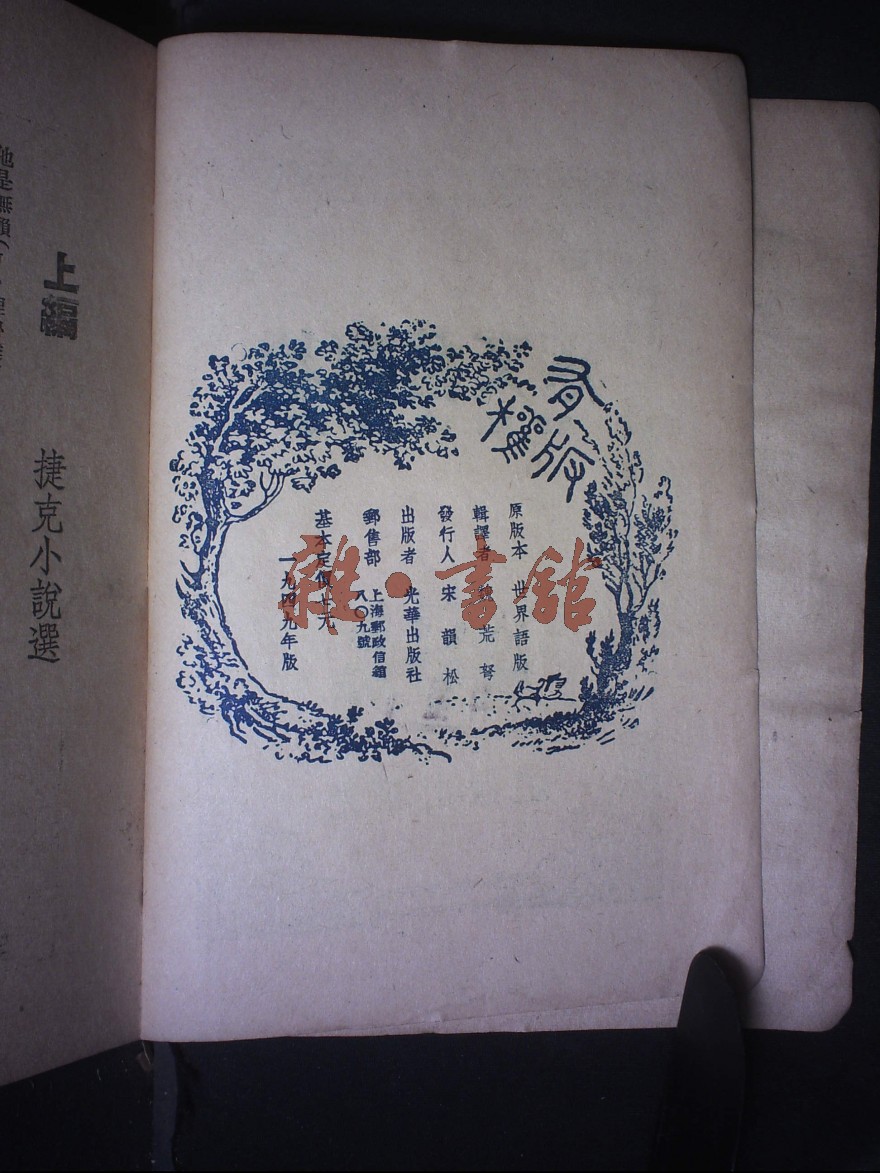 有版權
原版本　世界語版
輯譯者　　荒弩
發行人　宋韻松
出版者　光華出版社
郵售部　上海郵政信箱
八〇九號
基本定價　元
一九四九年版
上編
捷克小說選
他是無
雜·書館